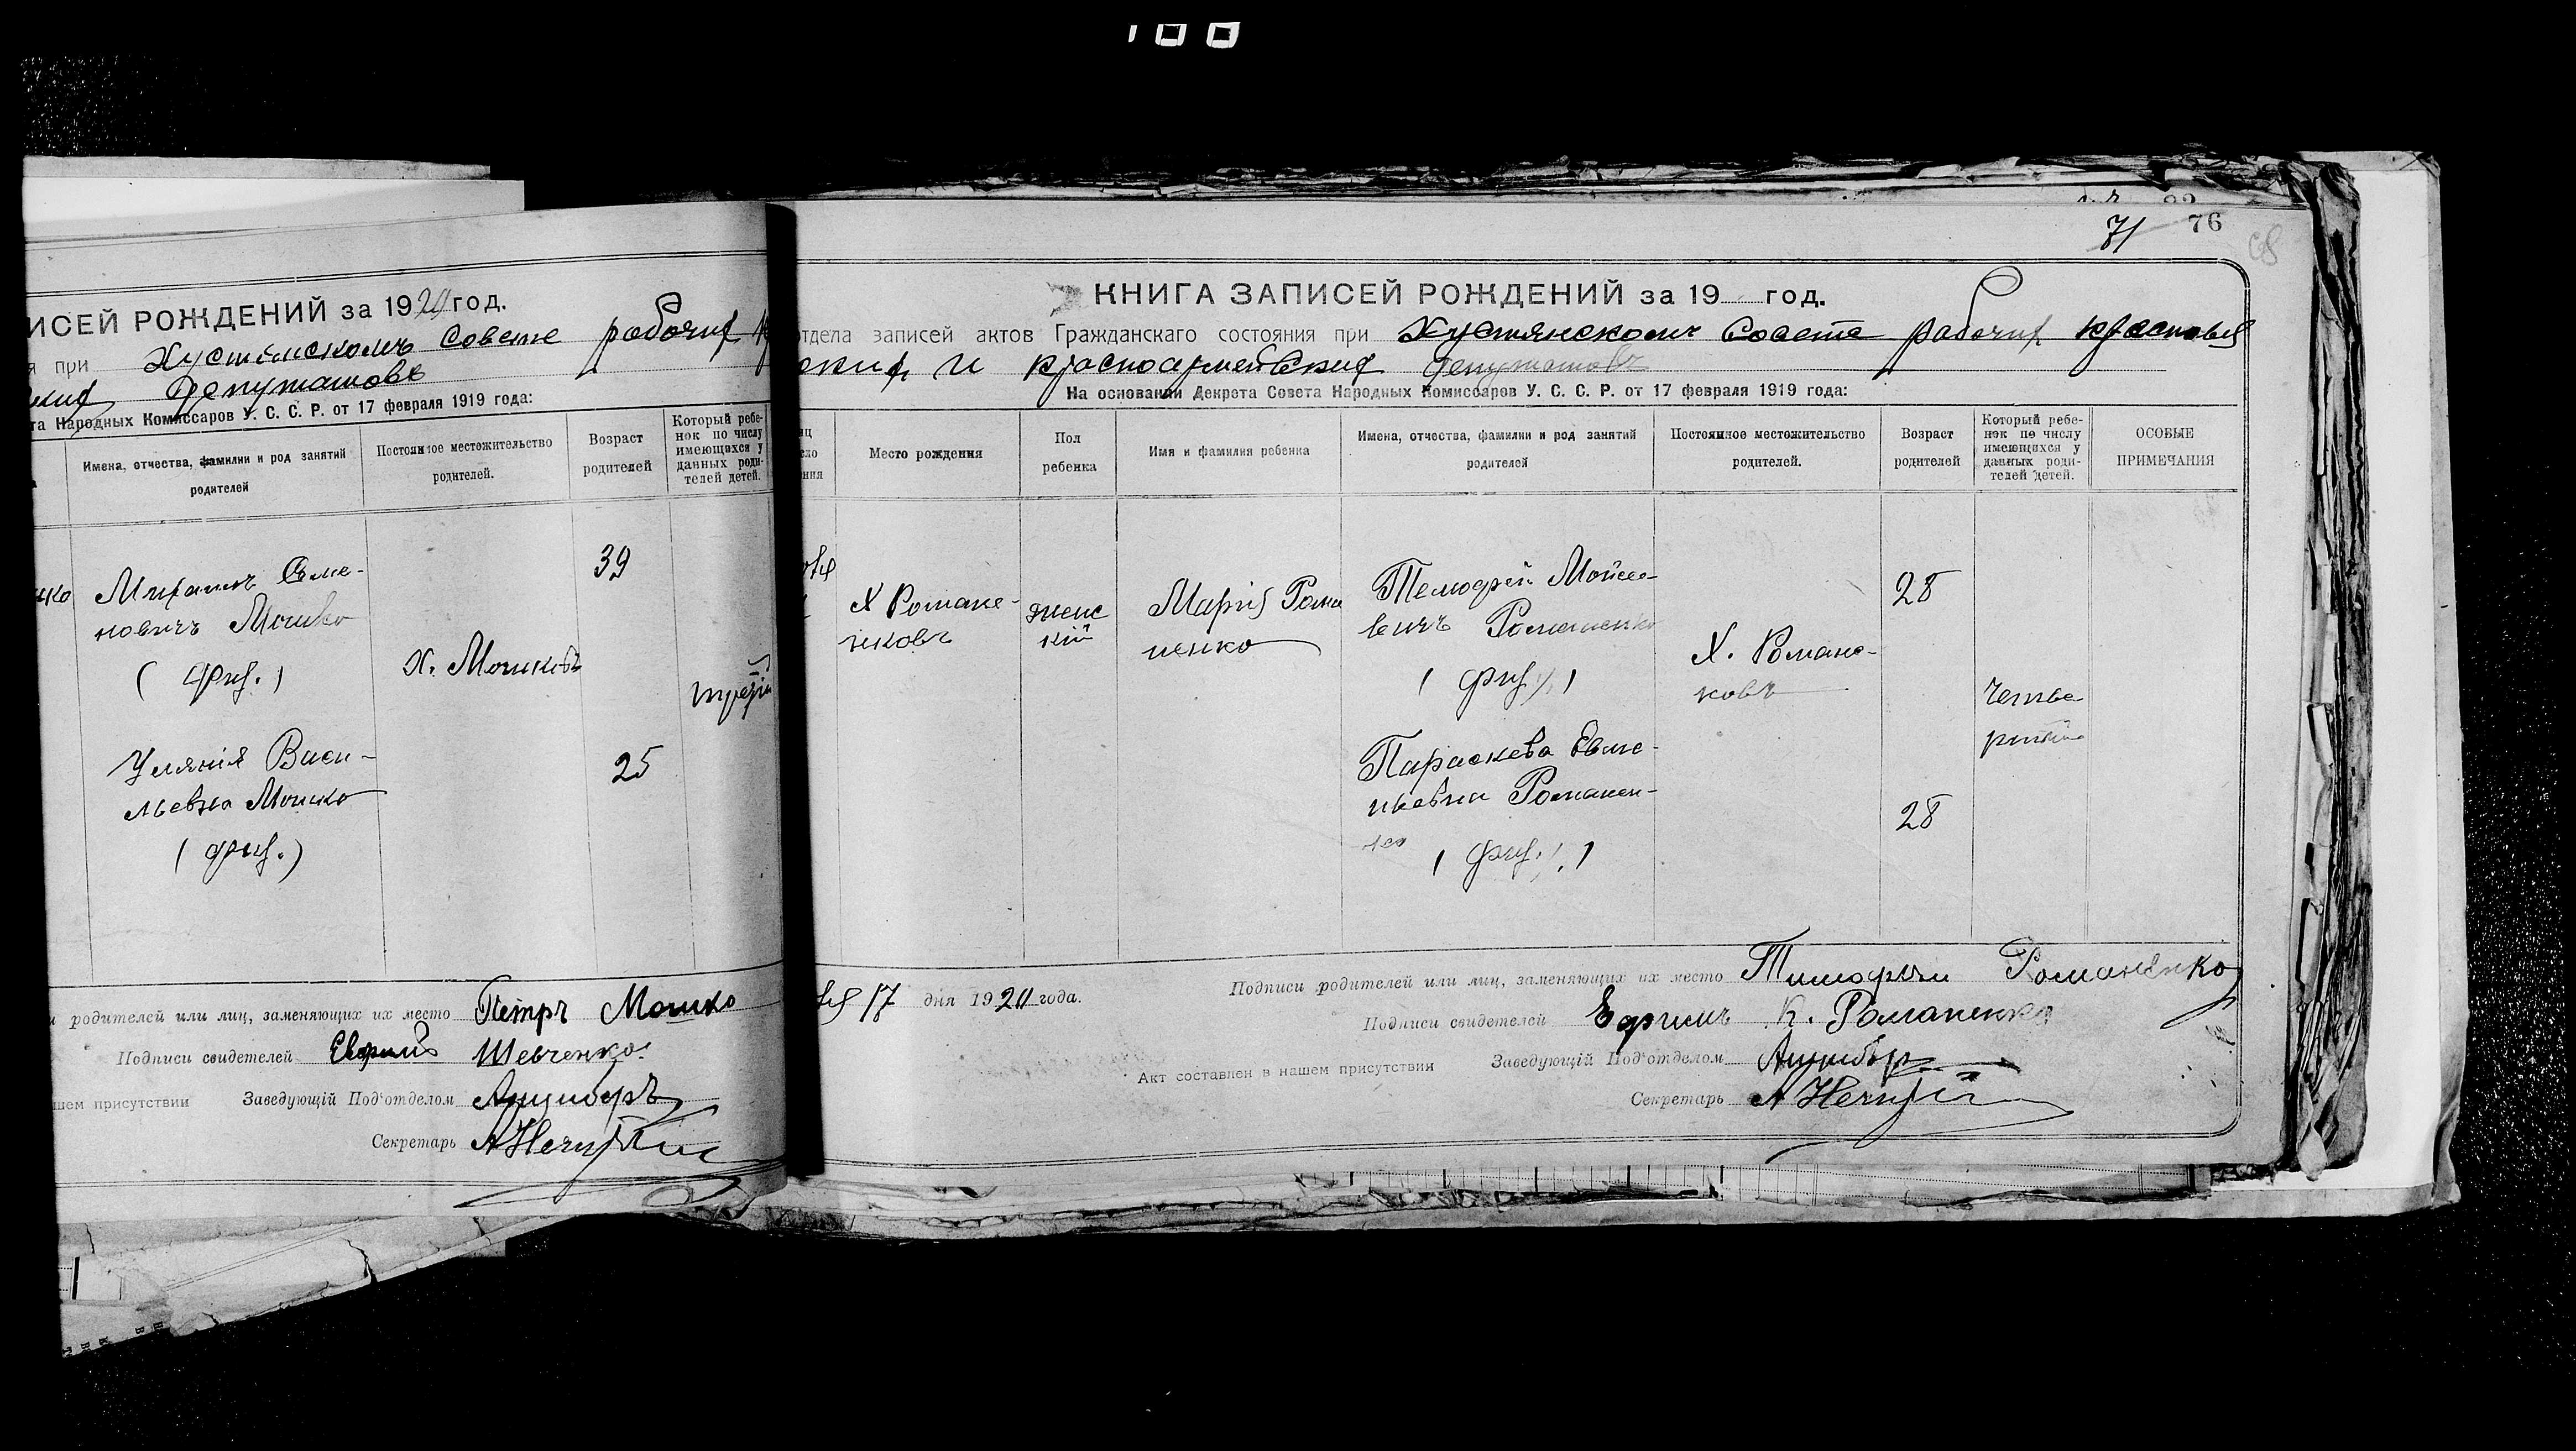 100
ИСЕЙ РОЖДЕНИЙ за 1920 год.
я при Хустянскомъ Совете рабочих
депутатовъ
та Народных Комиссаров У. С. С. Р. от 17 февраля 1919 года:
Имена, отчества, фамилии и род занятий родителей
Постоянное местожительство родителей.
Возраст родителей
Который ребенок по числу имеющихся у данных родителей детей.
нко
Михаилъ Семе-
новичъ Мошко
Х. Мошковъ
39
третій
Уляния Васи-
льевна Мошко
25
и родителей или лиц, заменяющих их место Петръ Мошко
Подписи свидетелей Евфимъ Шевченко.
шем присутствии Заведующій Под'отделом
Секретарь
71 76
68
КНИГА ЗАПИСЕЙ РОЖДЕНИЙ за 19 год.
отдела записей актов Гражданскаго состояния при Хустянскомъ Совете рабочих крестья
ских и красноармейских депутатовъ
На основании Декрета Совета Народных Комиссаров У. С. С. Р. от 17 февраля 1919 года:
Место рождения
Пол ребенка
Имя и фамилия ребенка
Имена, отчества, фамилии и род занятий родителей
Постоянное местожительство родителей.
Возраст родителей
Который ребенок по числу имеющихся у данных родителей детей.
ОСОБЫЕ ПРИМЕЧАНИЯ
Х Романе-
нковъ
женс
кій
Марія Рома
ненко
Тимофей Мойсе-
вичъ Романенко
Х. Романе-
ковъ
28
четве-
ртый
Параскева Евме-
ньевна Романен-
ко
28
17 дня 1920 года.
Подписи родителей или лиц, заменяющих их место Тимофѣи Романенко
Подписи свидетелей Ефимъ К. Романенко
Акт составлен в нашем присутствии Заведующій Под'отделом
Секретарь